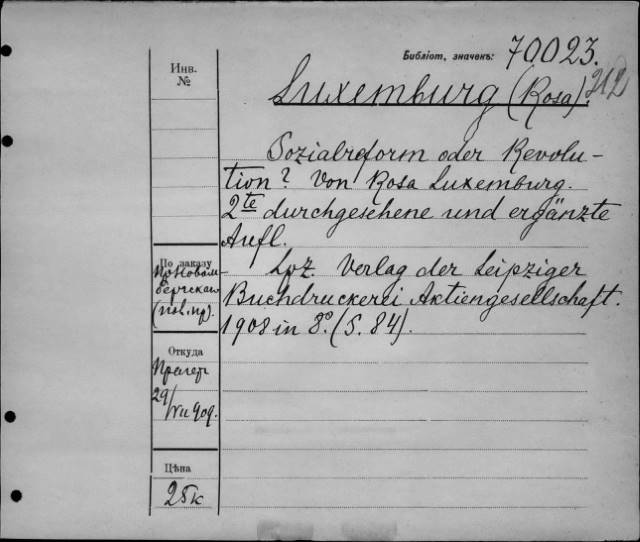 Инв.
№
Библіот. значекъ: 70023.
212
Luxemburg (Rosa).
Sozialreform oder Revolu-
tion? Von Rosa Luxemburg.
2te durchgesehene und ergänzte
Aufl.
Lpz. Verlag der Leipziger
Buchdruckerei Aktiengesellschaft.
1908 in 8º. (S. 84).
По заказу
Откуда
Прагер
29/VII 909.
Цѣна
25 к